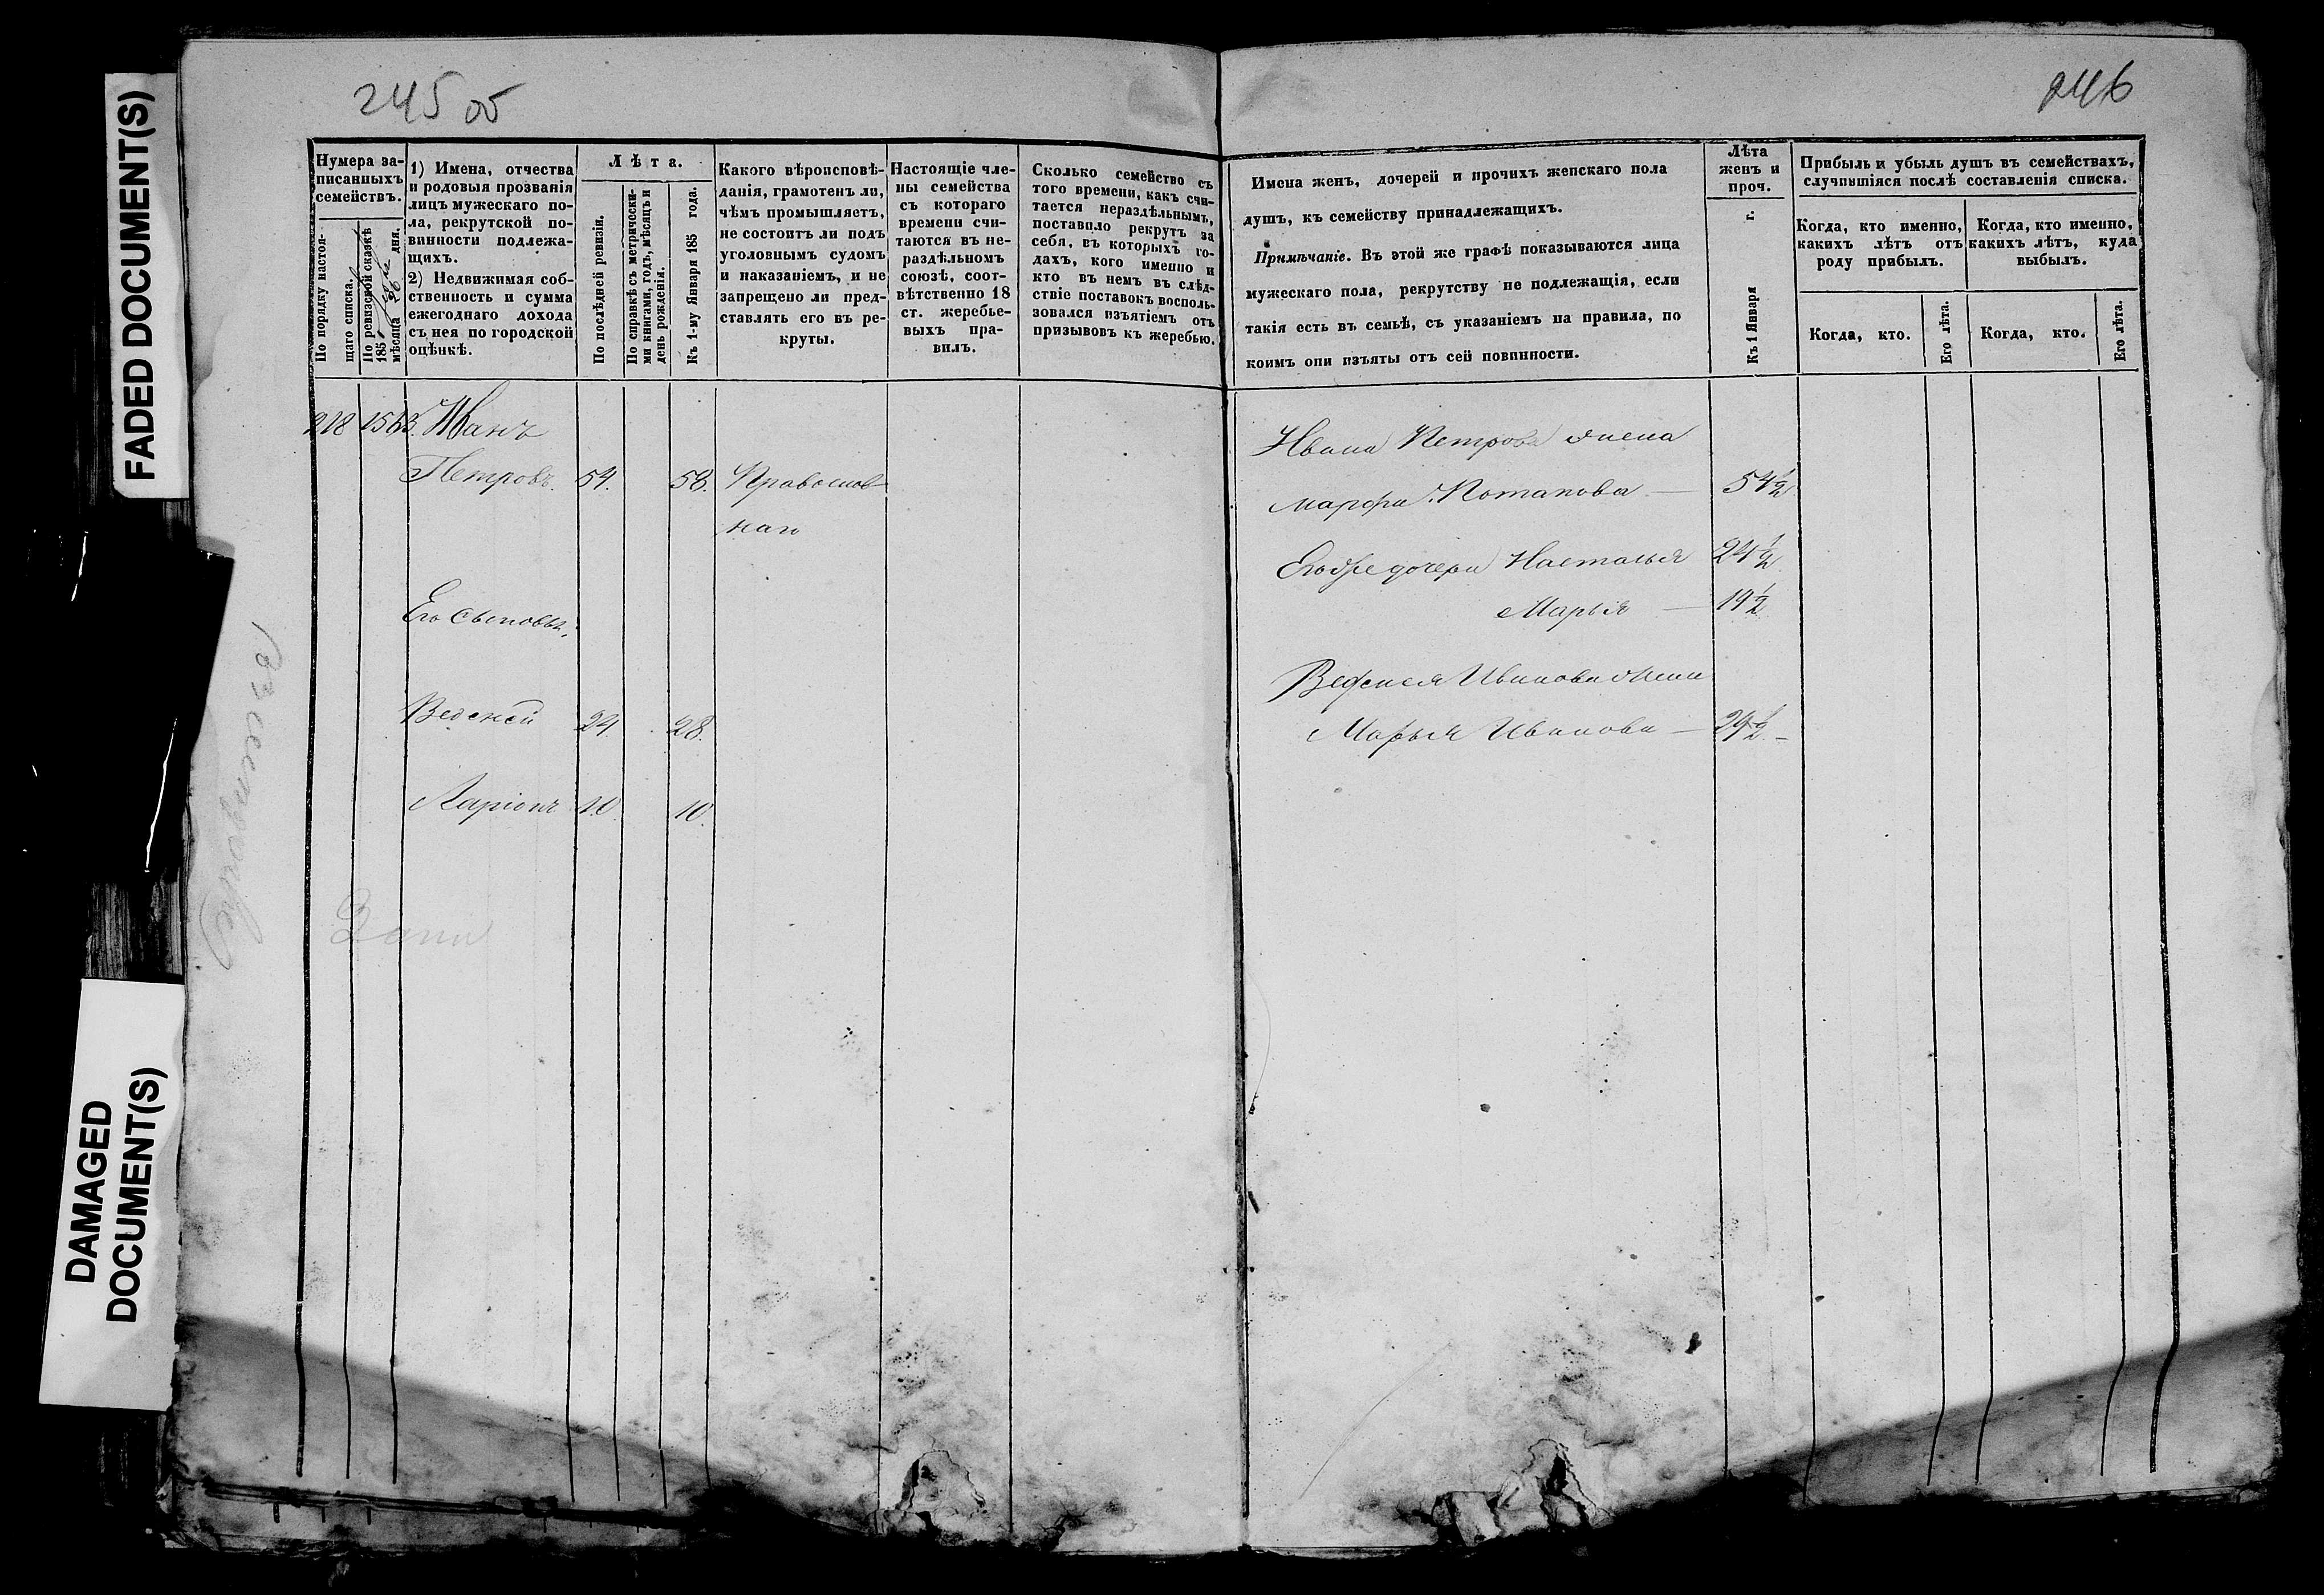 FADED DOCUMENT(S)
DAMAGED
DOCUMENT(S)
245 об
Нумера за-
писанныхъ
семействъ.
По порядку настоя-
щаго списка.
По ревизской сказкѣ
185 года
мѣсяца 26 дня.
1) Имена, отчества
и родовыя прозванія
лицъ мужескаго по-
ла, рекрутской по-
винности подлежа-
щихъ.
2) Недвижимая соб-
ственность и сумма
ежегоднаго дохода
съ нея по городской
оцѣнкѣ.
Лѣта.
По послѣдней ревизіи.
По справкѣ съ метрически-
ми книгами, годъ, мѣсяцъ и
день рожденія.
Къ 1-му Января 185 года.
Какого вѣроисповѣ-
данія, грамотенъ ли,
чѣмъ промышляетъ,
не состоитъ ли подъ
уголовнымъ судомъ
и наказаніемъ, и не
запрещено ли пред-
ставлять его въ ре-
круты.
Настоящіе чле-
ны семейства
съ котораго
времени счи-
таются въ не-
раздѣльномъ
союзѣ, соот-
вѣтственно 18
ст. жеребье-
выхъ пра-
вилъ.
Сколько семейство съ
того времени, какъ счи-
тается нераздѣльнымъ,
поставило рекрутъ за
себя, въ которыхъ го-
дахъ, кого именно и
кто въ немъ въ слѣд-
ствіе поставокъ восполь-
зовался изъятіемъ отъ
призывовъ къ жеребью.
218 1563. Иванъ
Петровъ. 54. 58. Православ
наго
Его Сыновья:
Веденей 24. 28.
Ларіонъ 10. 10.
Запи
246
Имена женъ, дочерей и прочихъ женскаго пола
душъ, къ семейству принадлежащихъ.
Примѣчаніе. Въ этой же графѣ показываются лица
мужескаго пола, рекрутству не подлежащія, если
такія есть въ семьѣ, съ указаніемъ на правила, по
коимъ они изъяты отъ сей повинности.
Лѣта
женъ и
проч.
Къ 1 Января г.
Прибыль и убыль душъ въ семействахъ,
случившіяся послѣ составленія списка.
Когда, кто именно,
какихъ лѣтъ отъ
роду прибылъ.
Когда, кто именно,
какихъ лѣтъ, куда
выбылъ.
Когда, кто.
Его лѣта.
Когда, кто.
Его лѣта.
Ивана Петрова жена
Марфа Потапова — 54½
Его дочери Настасья 24½
Марья — 19½
Веденея Иванова жена
Марья Иванова — 29½ —